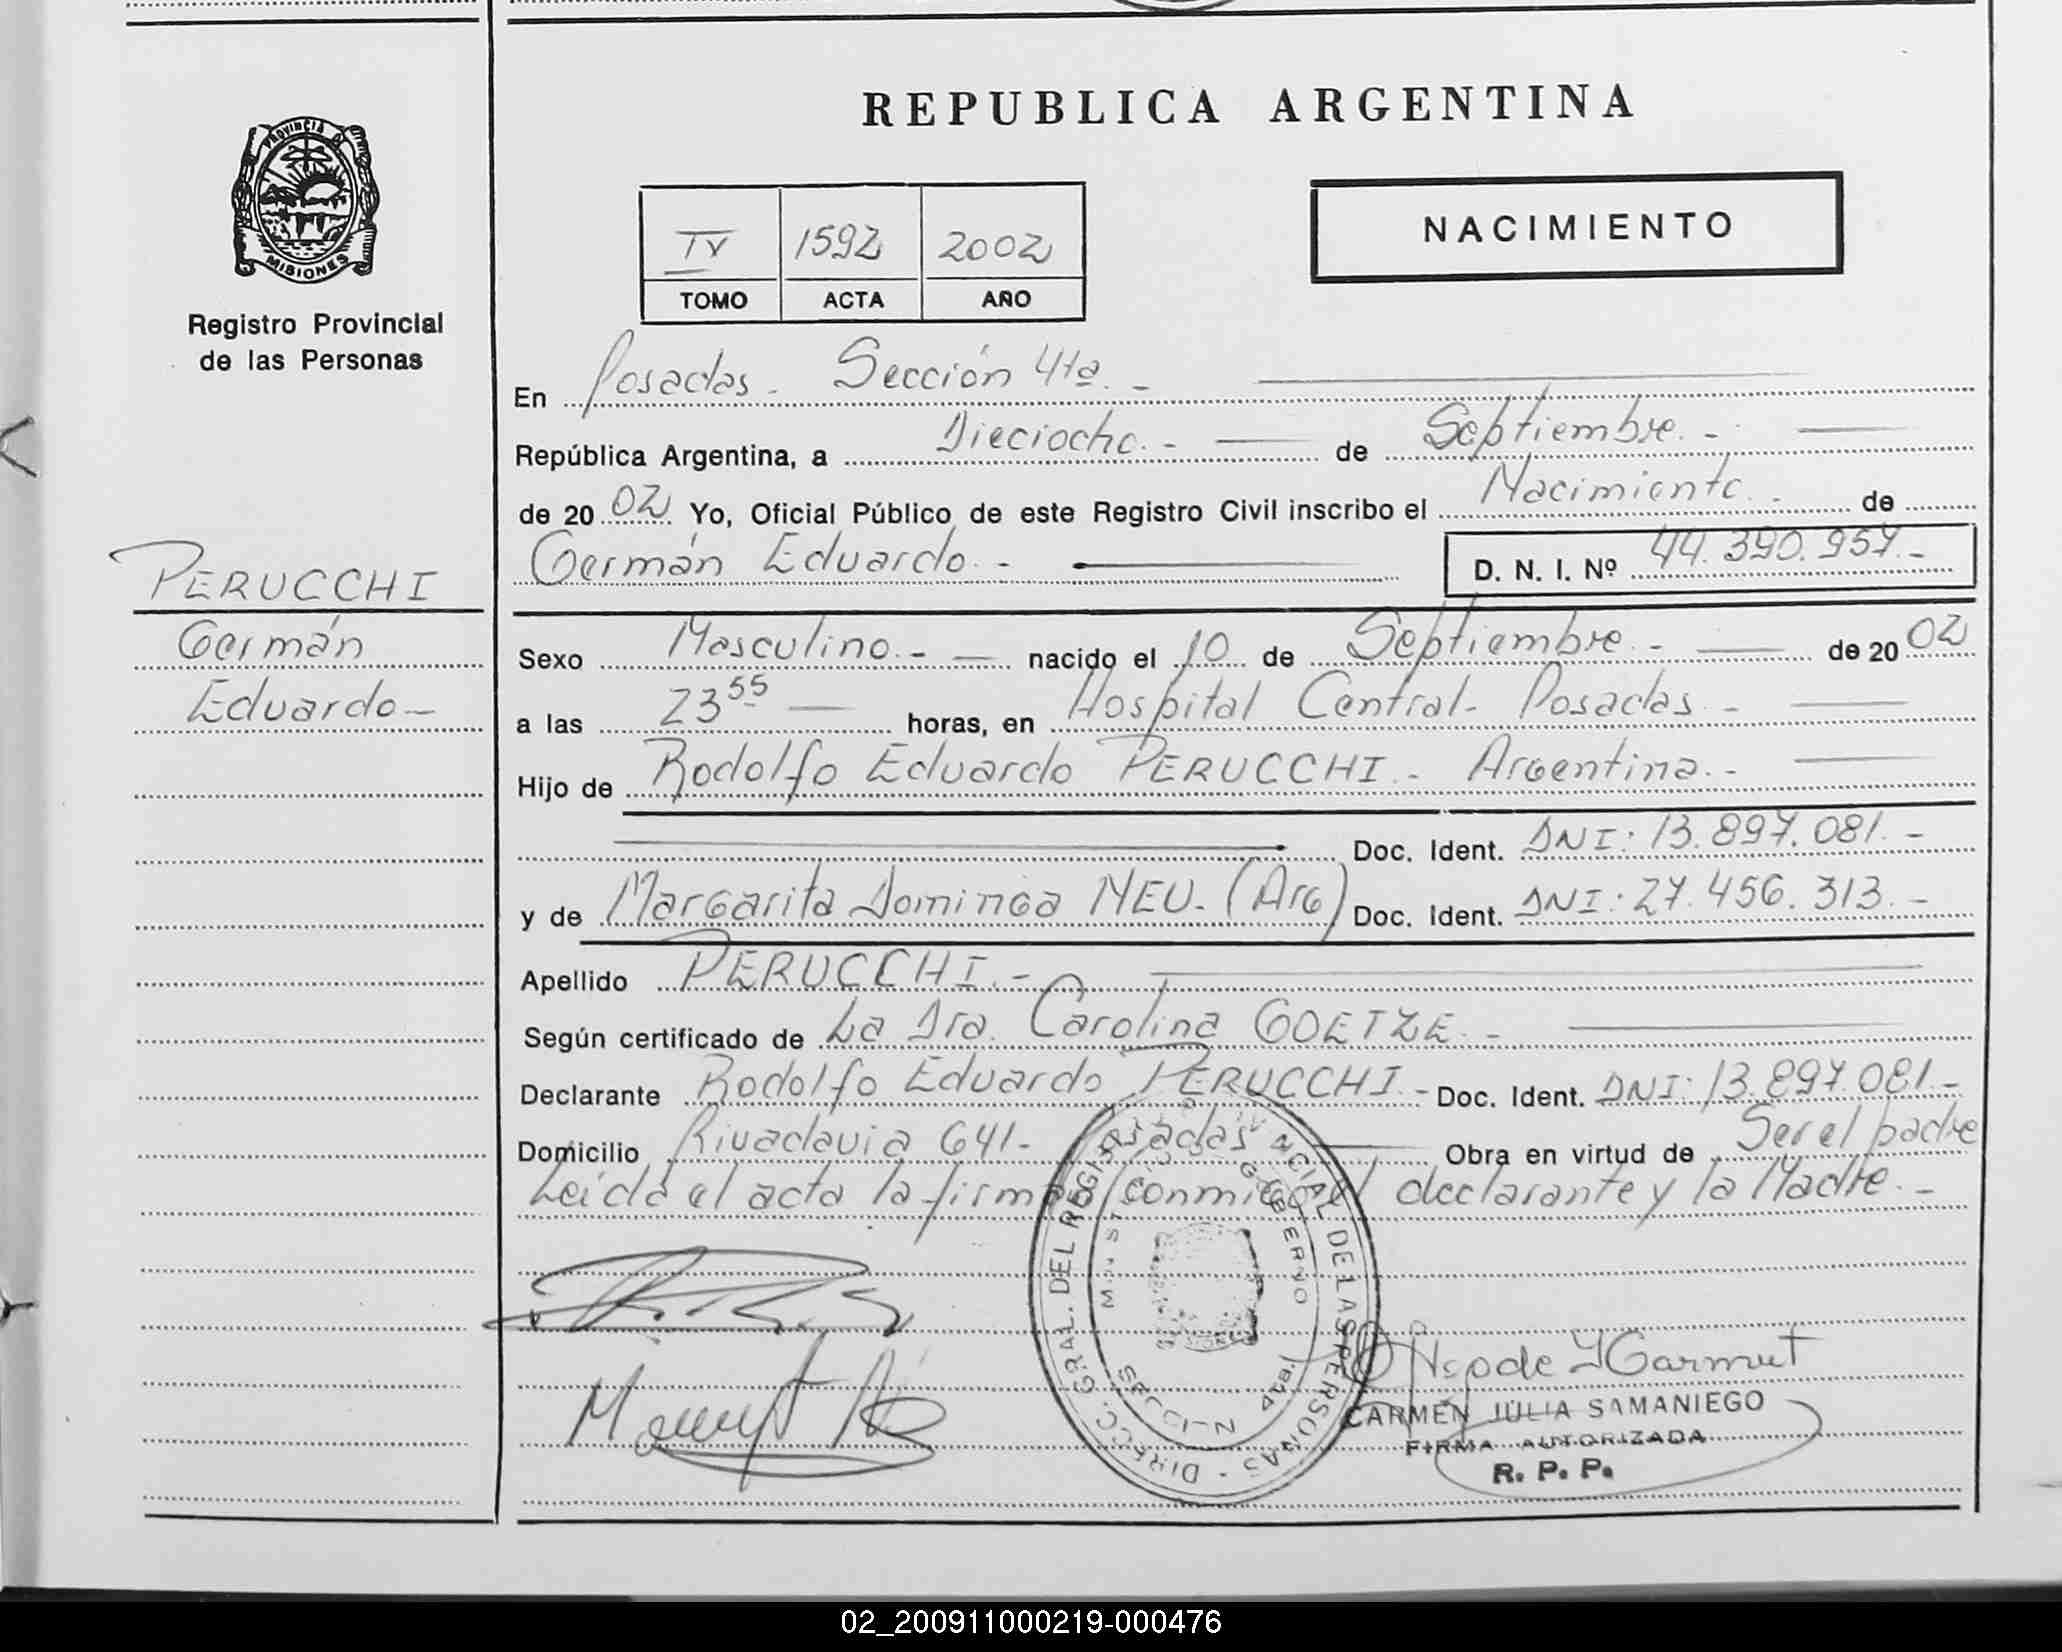 REPUBLICA ARGENTINA
PROVINCIA DE
MISIONES
Registro Provincial
de las Personas
IV 1592 2002
TOMO ACTA AÑO
NACIMIENTO
En Posadas - Sección 4ta. -
República Argentina, a Dieciocho. - de Septiembre. -
de 20 02 Yo, Oficial Público de este Registro Civil inscribo el Nacimiento. - de
Germán Eduardo. - D. N. I. Nº 44.390.957.-
PERUCCHI
Germán
Eduardo -
Sexo Masculino. - nacido el 10 de Septiembre. - de 20 02
a las 23 55 horas, en Hospital Central - Posadas -
Hijo de Rodolfo Eduardo PERUCCHI - Argentina. -
Doc. Ident. DNI: 13.897.081. -
y de Margarita Dominga NEU - (Arg) Doc. Ident. DNI: 27.456.313. -
Apellido PERUCCHI. -
Según certificado de La Dra. Carolina GOETZE. -
Declarante Rodolfo Eduardo PERUCCHI - Doc. Ident. DNI: 13.897.081.-
Domicilio Rivadavia 641 - Posadas Obra en virtud de Ser el padre
Leída el acta la firman conmigo el declarante y la Madre. -
DIRECC. GRAL. DEL REGISTRO PROVINCIAL DE LAS PERSONAS -
GOBIERNO
MISIONES
CARMEN JULIA SAMANIEGO
FIRMA AUTORIZADA
R. P. P.
02_200911000219-000476